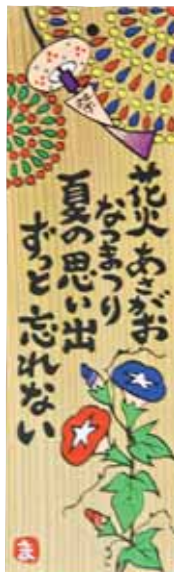 花火 あさがお
なつまつり
夏の思い出
ずっと 忘れない
ま